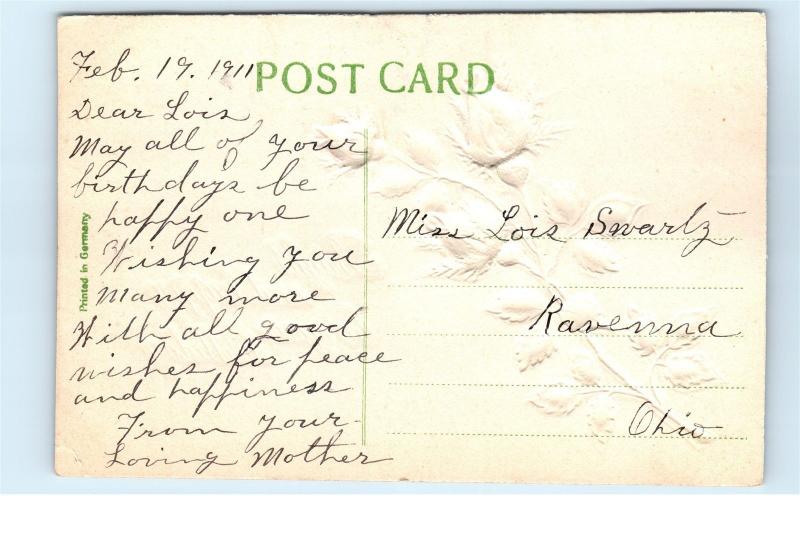 Feb. 19. 1911
POST CARD
Dear Lois
May all of your
birthdays be
happy one
Wishing you
Many more
With all good
wishes for peace
and happiness
From your
Loving Mother
Printed in Germany
Miss Lois Swartz
Ravenna
Ohio